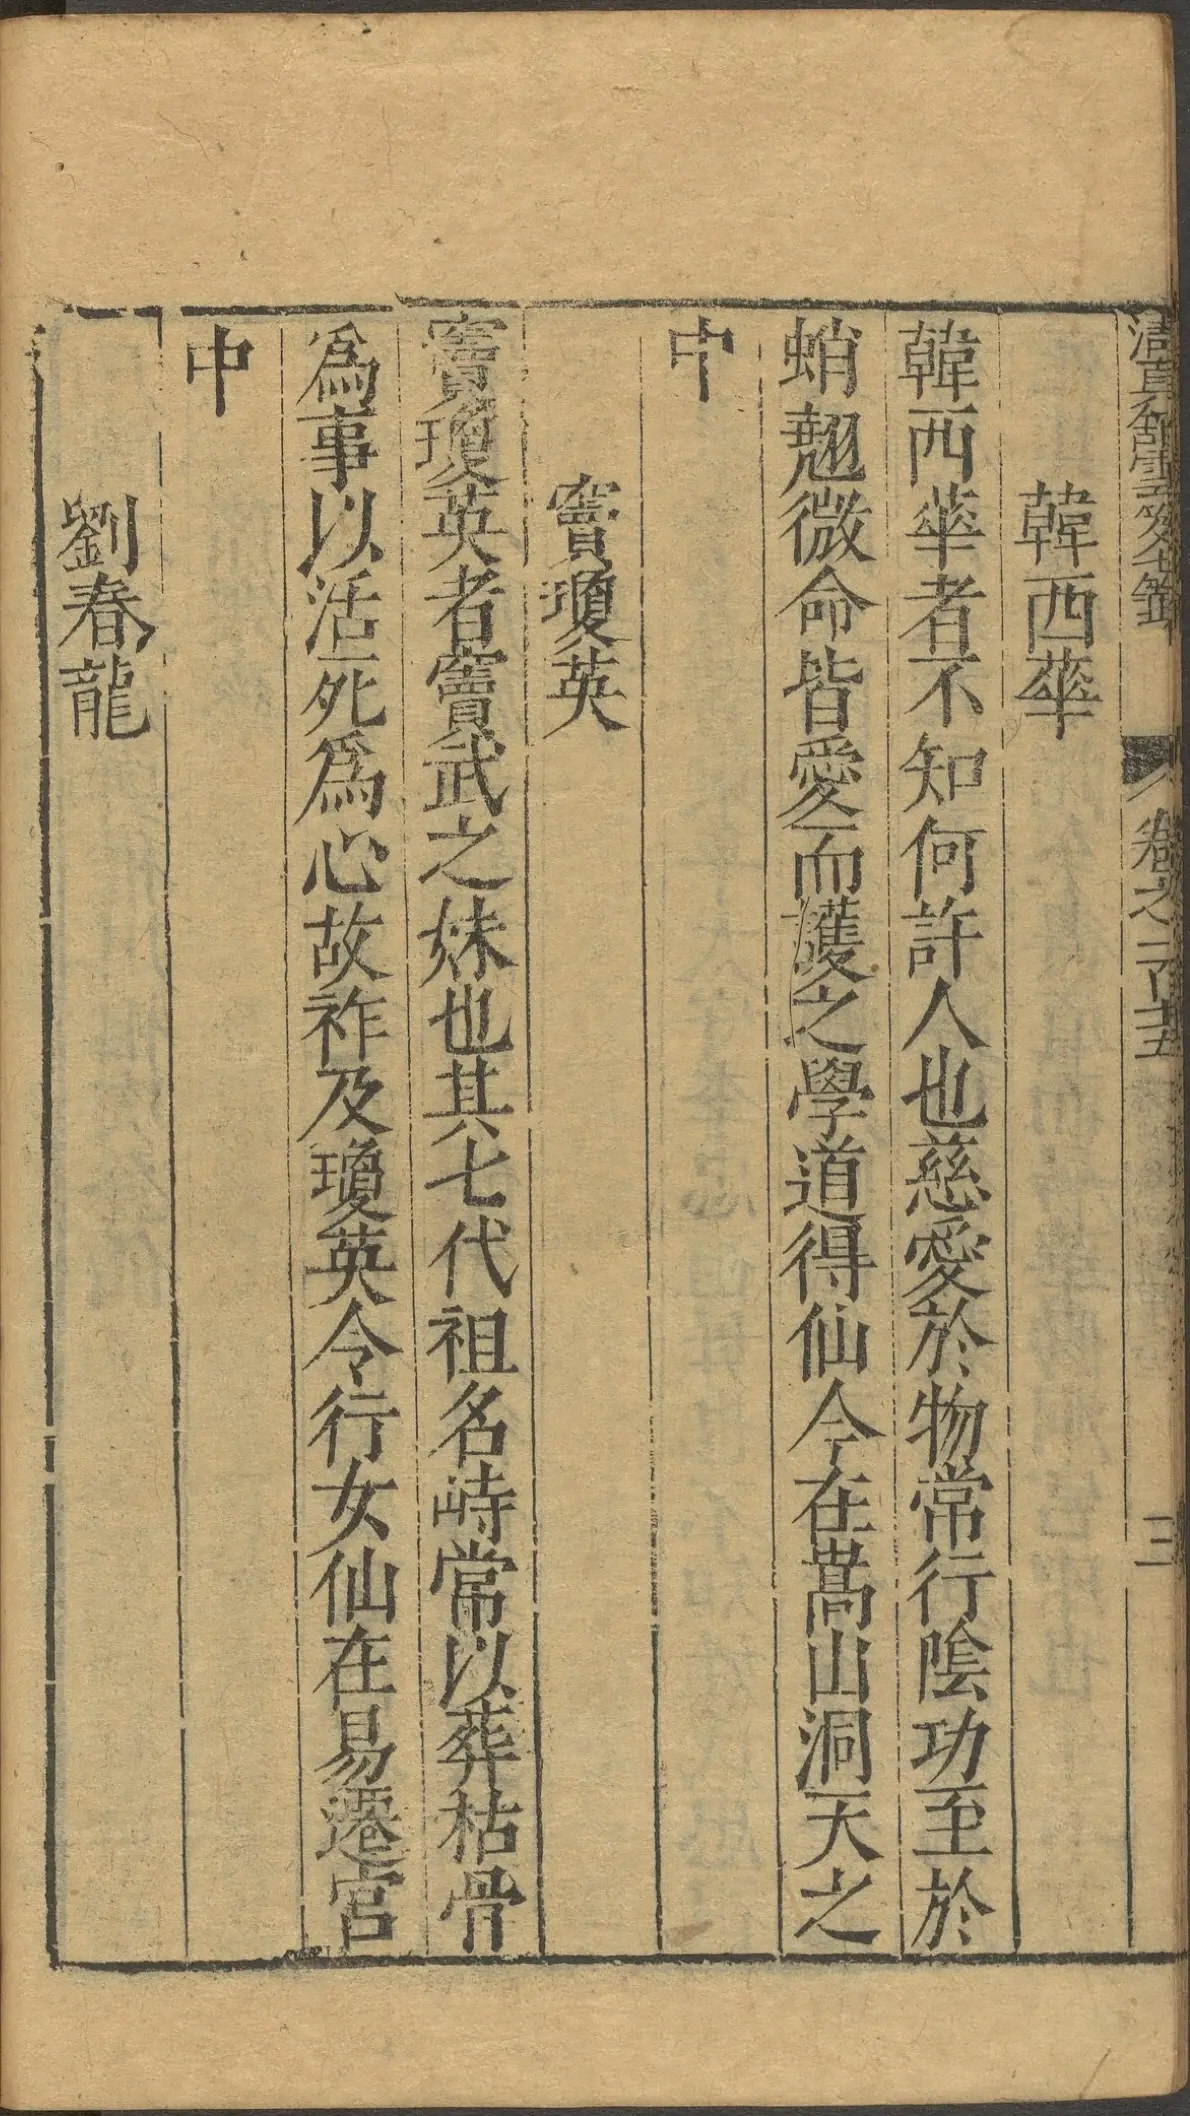 卷之二十五 三
韓西華
韓西華者不知何許人也慈愛於物常行陰功至於
蛸翹微命皆愛而護之學道得仙今在嵩山洞天之
中
竇瓊英
竇瓊英者竇武之妹也其七代祖名峙常以葬枯骨
爲事以活死爲心故祚及瓊英令行女仙在易遷宮
中
劉春龍